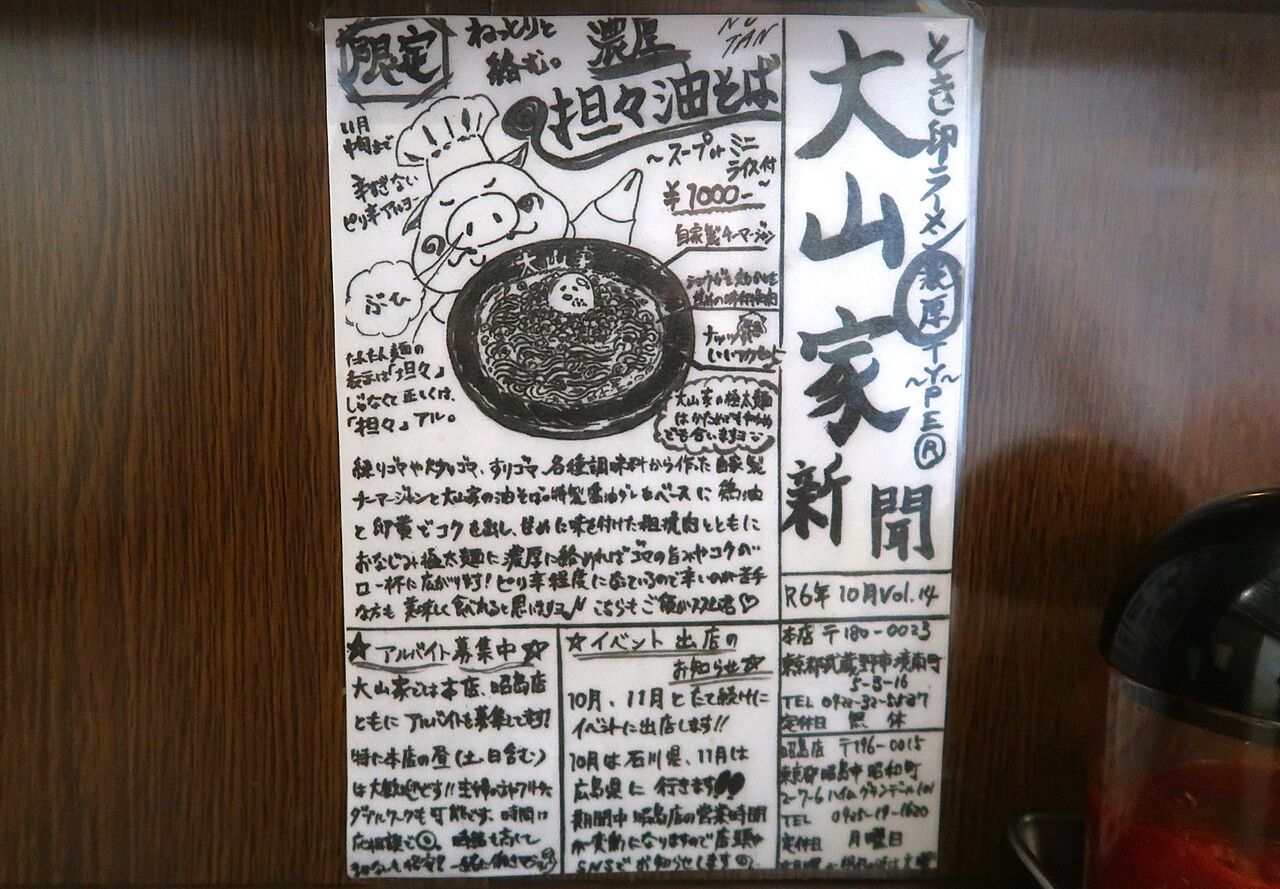 とき印ラーメン濃厚TYPE R
大山家新聞
R6年 10月 Vol.14
限定
ねっとりと
絡む。
濃厚
担々油そば
NUTAN
〜スープorミニ
ライス付〜
¥1000-
11月
中旬まで
辛すぎない
ピリ辛アルヨー
自家製チーマージャン
大山家
ぶひ
ナッツが
いいアクセント
大山家の極太麺
はかためでもやわめ
でも合いますヨ
たんたん麺の
表示は「坦々」
じゃなくて正しくは、
「担々」アル。
練りゴマや炒りゴマ、すりゴマ、各種調味料から作った自家製
チーマージャンと大山家の油そばの特製醤油ダレをベースに鶏油
と卵黄でコクを出し、甘めに味を付けた粗挽肉とともに
おなじみ極太麺に濃厚に絡めればゴマの旨みやコクが
口一杯に広がります!ピリ辛程度になっているので辛いのが苦手
な方も美味しく食べれると思いますヨ♪こちらもご飯がススム君♡
☆アルバイト募集中☆
大山家では本店、昭島店
ともにアルバイトを募集してます!
特に本店の昼(土、日含む)
は大歓迎です!!主婦の方やフリーター
ダブルワークも可能です、時間は
応相談で
☆イベント出店の
お知らせ☆
10月、11月とたて続けに
イベントに出店します!!
10月は石川県、11月は
広島県に行きます!!
期間中 昭島店の営業時間
が変動になりますので店頭や
SNSでお知らせします。
本店 〒180-0023
東京都武蔵野市境南町
5-3-16
TEL 0422-32-5537
定休日 無休
昭島店 〒196-0015
東京都昭島市昭和町
2-7-6 ハイムグランデール101
TEL
定休日 月曜日